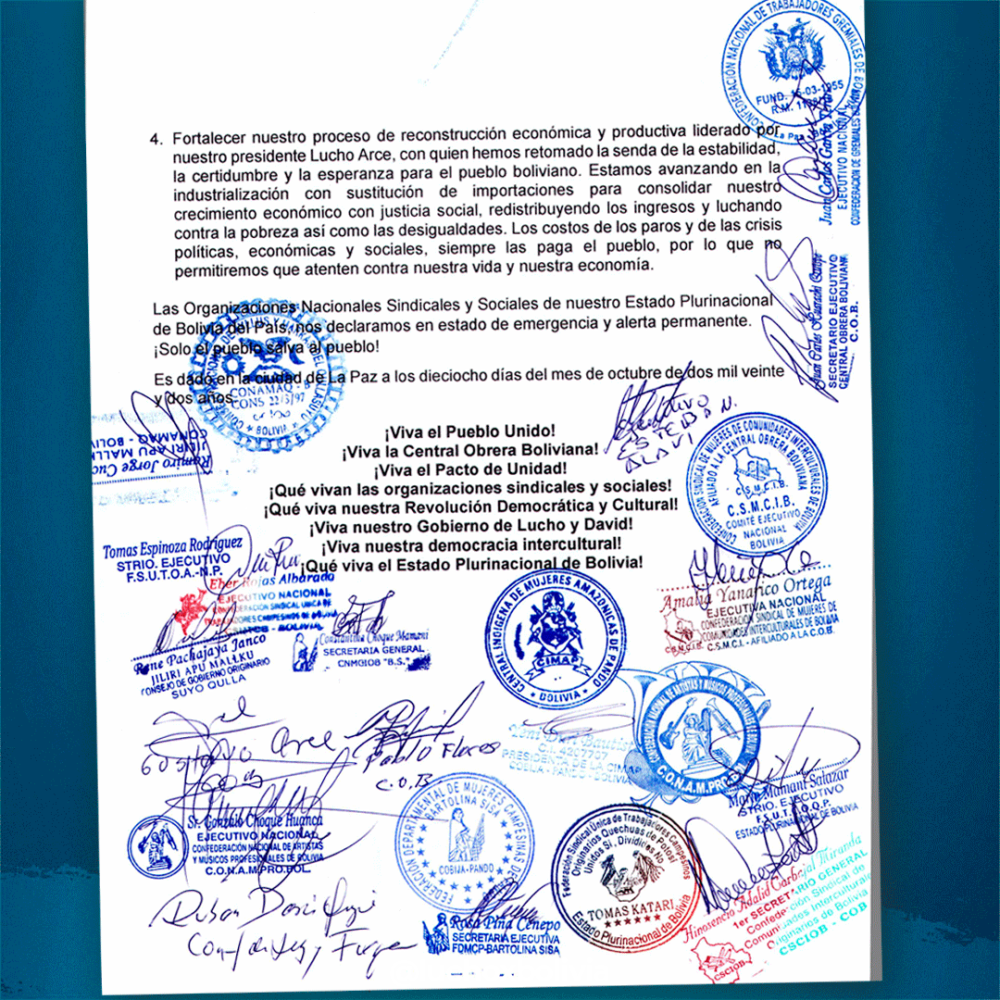 CONFEDERACIÓN NACIONAL DE TRABAJADORES GREMIALES DE BOLIVIA
FUND. 15-03-1955
La Paz - Bolivia
Juan Carlos García
EJECUTIVO NACIONAL
CONFEDERACIÓN DE GREMIALES DE BOLIVIA
4. Fortalecer nuestro proceso de reconstrucción económica y productiva liderado por
nuestro presidente Lucho Arce, con quien hemos retomado la senda de la estabilidad,
la certidumbre y la esperanza para el pueblo boliviano. Estamos avanzando en la
industrialización con sustitución de importaciones para consolidar nuestro
crecimiento económico con justicia social, redistribuyendo los ingresos y luchando
contra la pobreza así como las desigualdades. Los costos de los paros y de las crisis
políticas, económicas y sociales, siempre las paga el pueblo, por lo que no
permitiremos que atenten contra nuestra vida y nuestra economía.
Juan Carlos Huarachi Quispe
SECRETARIO EJECUTIVO
CENTRAL OBRERA BOLIVIANA
C.O.B.
Las Organizaciones Nacionales Sindicales y Sociales de nuestro Estado Plurinacional
de Bolivia del País, nos declaramos en estado de emergencia y alerta permanente.
¡Solo el pueblo salva al pueblo!
Es dado en la ciudad de La Paz a los dieciocho días del mes de octubre de dos mil veinte
y dos años.
CONAMAQ - B
CONS 22/3/97
BOLIVIA
Ramiro Jorge Cuc
JILIRI APU MALLK
CONAMAQ - BOL
ESTEBAN
ALAVI
¡Viva el Pueblo Unido!
¡Viva la Central Obrera Boliviana!
¡Viva el Pacto de Unidad!
¡Qué vivan las organizaciones sindicales y sociales!
¡Qué viva nuestra Revolución Democrática y Cultural!
¡Viva nuestro Gobierno de Lucho y David!
¡Viva nuestra democracia intercultural!
¡Qué viva el Estado Plurinacional de Bolivia!
CONFEDERACIÓN SINDICAL DE MUJERES DE COMUNIDADES INTERCULTURALES DE BOLIVIA
AFILIADO A LA CENTRAL OBRERA BOLIVIANA
C.S.M.C.I.B.
C.S.M.C.I.B.
COMITÉ EJECUTIVO
NACIONAL
BOLIVIA
Tomas Espinoza Rodriguez
STRIO. EJECUTIVO
F.S.U.T.O.A.-N.P.
Eber Rojas Albarado
EJECUTIVO NACIONAL
CONFEDERACIÓN SINDICAL UNICA DE
TRABAJADORES CAMPESINOS DE BOLIVIA
BOLIVIA
Rene Pachajaya Janco
JILIRI APU MALLKU
CONSEJO DE GOBIERNO ORIGINARIO
SUYO QULLA
Constantina Choque Mamani
SECRETARIA GENERAL
CNMCIOB "B.S."
CENTRAL INDIGENA DE MUJERES AMAZONICAS DE PANDO
CIMAP
BOLIVIA
Amalia Yanarico Ortega
EJECUTIVA NACIONAL
CONFEDERACIÓN SINDICAL DE MUJERES DE
COMUNIDADES INTERCULTURALES DE BOLIVIA
C.S.M.C.I. - AFILIADO A LA C.O.B.
Gustavo Arce
Pablo Flores
C.O.B
PRESIDENTA DE LA CIMAP
COBIJA - PANDO - BOLIVIA
CONFEDERACIÓN NACIONAL DE ARTISTAS Y MÚSICOS PROFESIONALES DE BOLIVIA
C.O.N.A.M.PRO.BOL.
Mario Mamani Salazar
STRIO. EJECUTIVO
F.S.U.T.O.Q.P.
ESTADO PLURINACIONAL DE BOLIVIA
Sr. Gonzalo Choque Huanca
EJECUTIVO NACIONAL
CONFEDERACIÓN NACIONAL DE ARTISTAS
Y MÚSICOS PROFESIONALES DE BOLIVIA
C.O.N.A.M.PRO.BOL.
FEDERACIÓN DEPARTAMENTAL DE MUJERES CAMPESINAS
BARTOLINA SISA
COBIJA-PANDO
Federación Sindical Única de Trabajadores Campesinos
Originarios Quechuas de Potosí
Unidos Sí, Divididos No
TOMAS KATARI
Estado Plurinacional de Bolivia
Rosa Pina Cenepo
SECRETARIA EJECUTIVA
FDMCP-BARTOLINA SISA
Hinosencio Adalid Garbajal Miranda
1er SECRETARIO GENERAL
Confederación Sindical de
Comunidades Interculturales
Originarios de Bolivia
CSCIOB - COB
CSCIOB